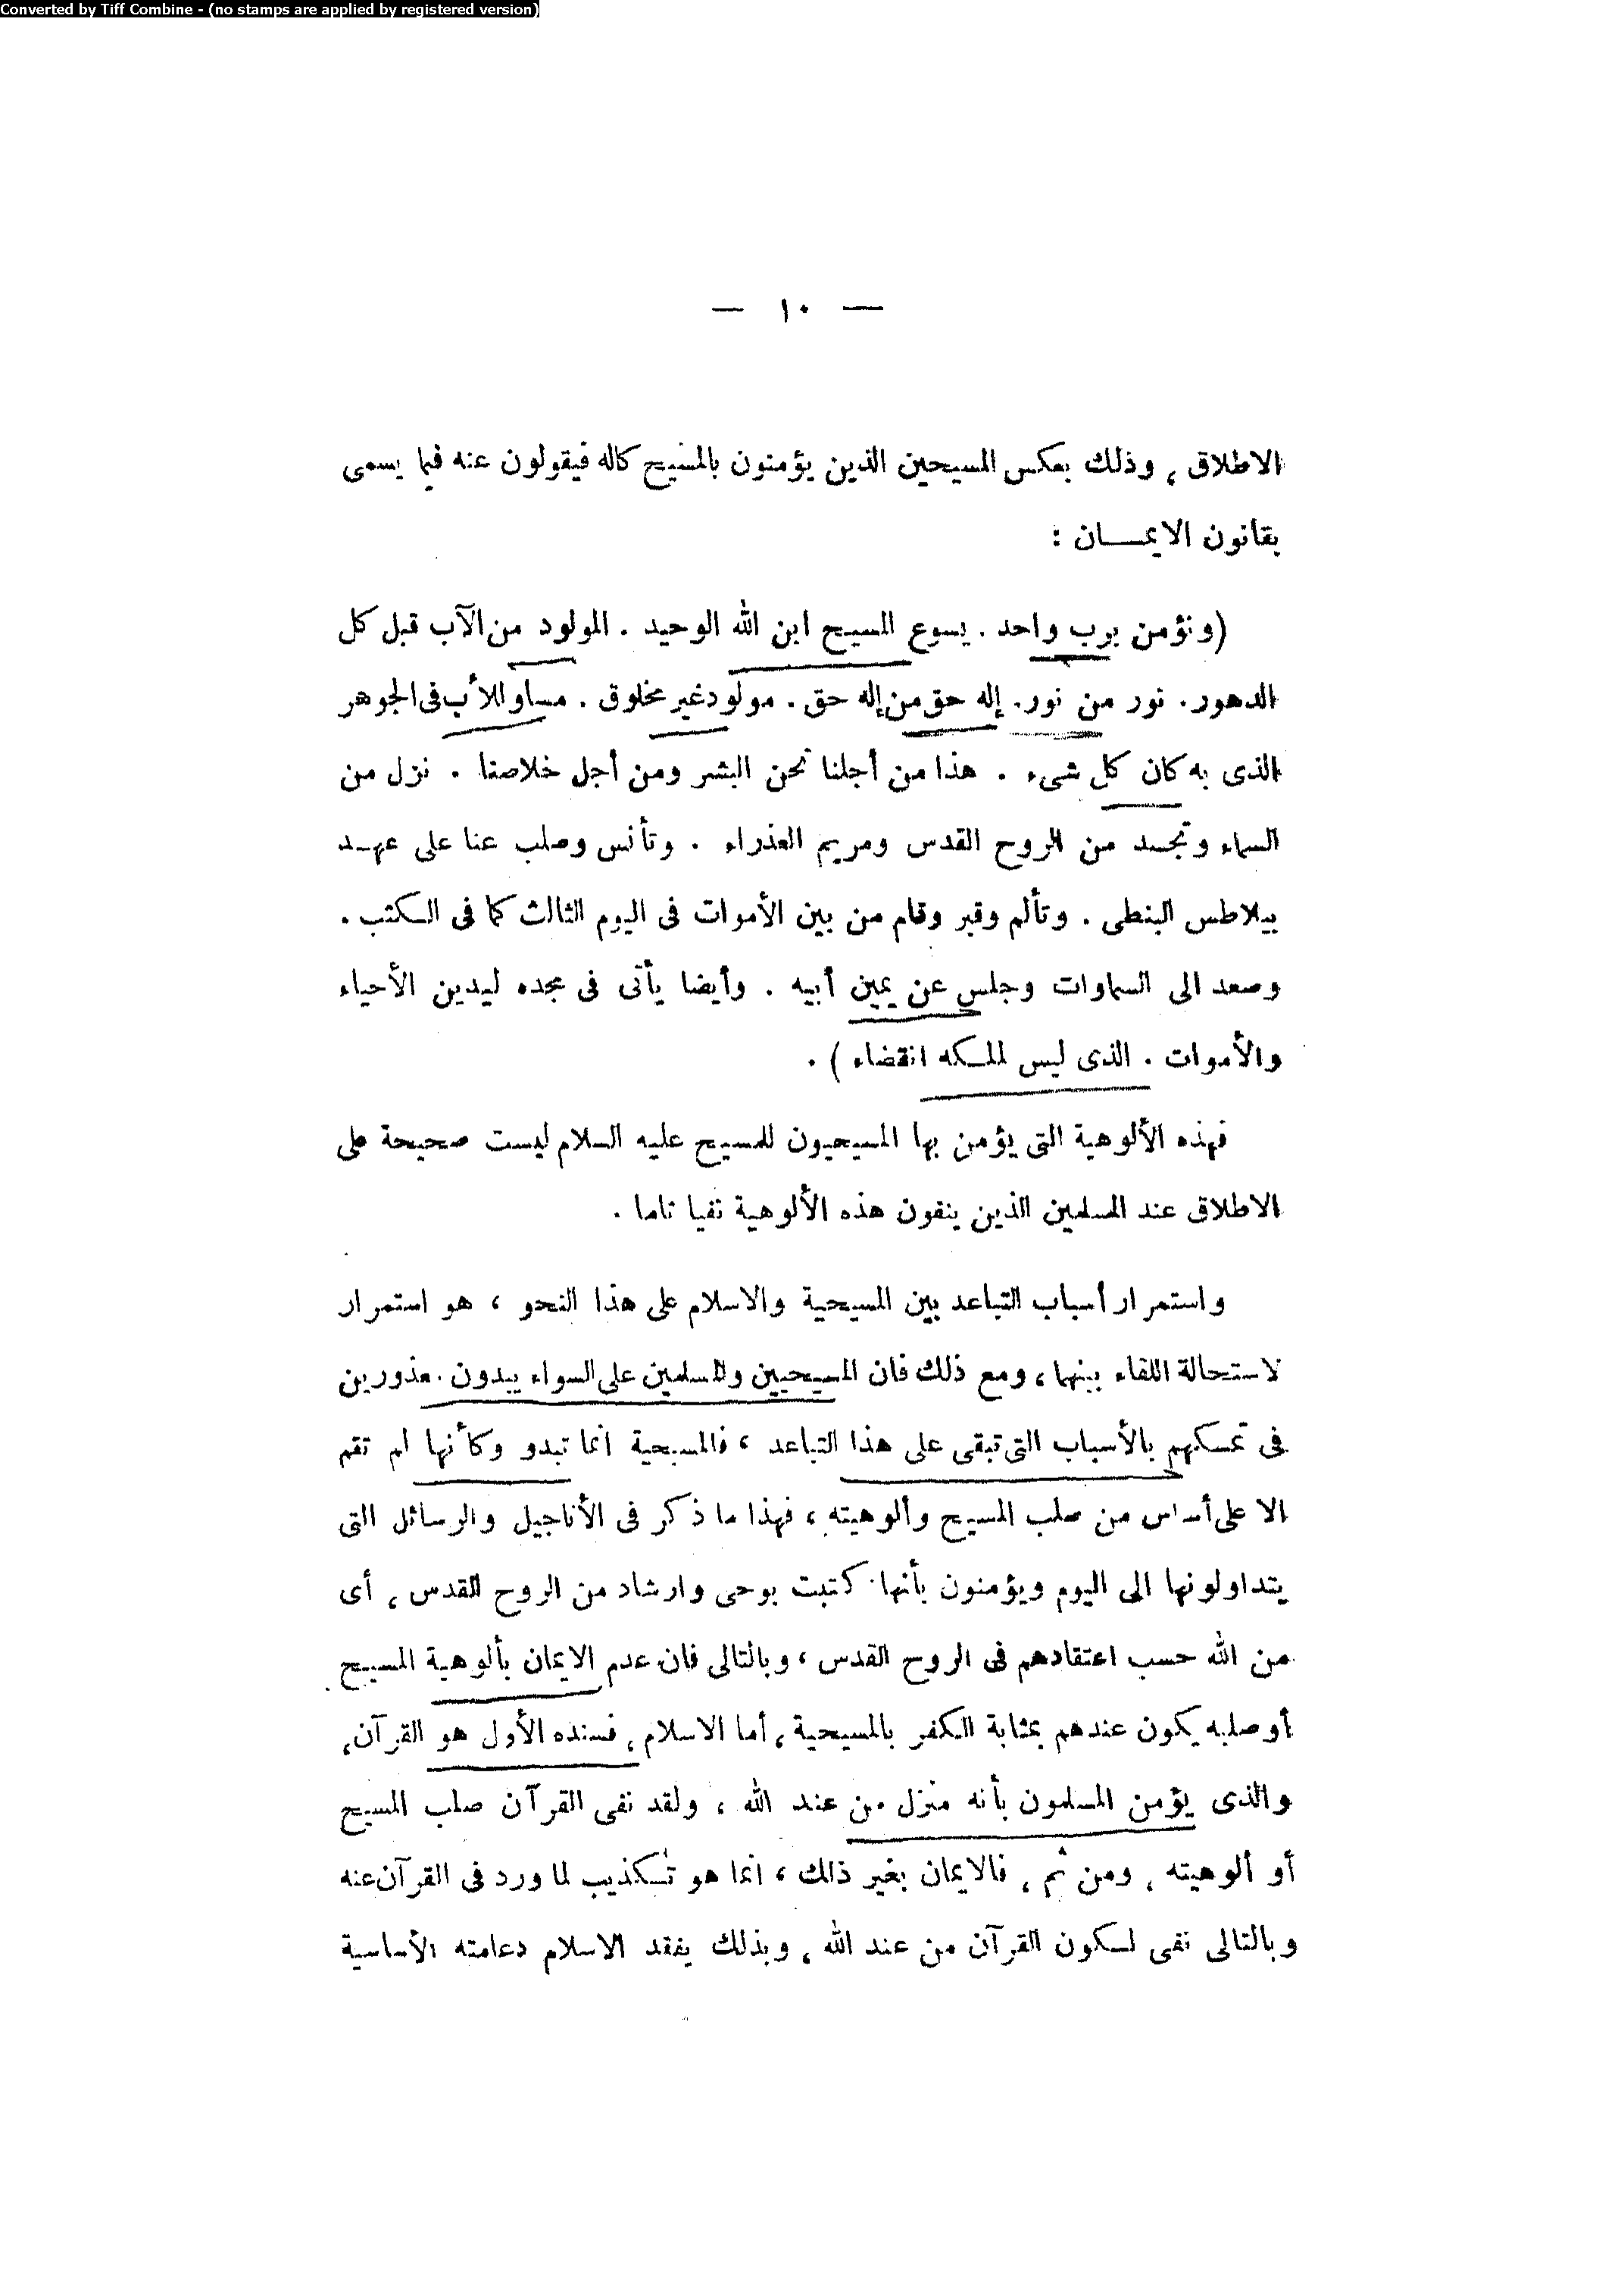 Converted by Tiff Combine - (no stamps are applied by registered version)
— ١٠ —
الاطلاق ، وذلك بعكس المسيحين الذين يؤمنون بالمسيح كاله فيقولون عنه فيما يسمى
بقانون الايمــــان :
(ونؤمن برب واحد . يسوع المسيح ابن الله الوحيد . المولود من الآب قبل كل
الدهور . نور من نور . إله حق من إله حق . مولود غير مخلوق . مساو للأب فى الجوهر
الذى به كان كل شىء . هذا من أجلنا نحن البشر ومن أجل خلاصنا . نزل من
السماء وتجسد من الروح القدس ومريم العذراء . وتأنس وصلب عنا على عهـد
بيلاطس البنطى . وتألم وقبر وقام من بين الأموات فى اليوم الثالث كما فى الكتب .
وصعد الى السماوات وجلس عن يمين أبيه . وأيضا يأتى فى مجده ليدين الأحياء
والأموات . الذى ليس لملكه انقضاء ) .
فهذه الألوهية التى يؤمن بها المسيحيون للمسيح عليه السلام ليست صحيحة على
الاطلاق عند المسلمين الذين ينفون هذه الألوهية نفيا تاما .
واستمرار أسباب التباعد بين المسيحية والاسلام على هذا النحو ، هو استمرار
لاستحالة اللقاء بينهما ، ومع ذلك فان المسيحيين والمسلمين على السواء يبدون معذورين
فى تمسكهم بالأسباب التى تبقى على هذا التباعد ، فالمسيحية انما تبدو وكأنها لم تقم
الا على أساس من صلب المسيح وألوهيته ، فهذا ما ذكر فى الأناجيل والرسائل التى
يتداولونها الى اليوم ويؤمنون بأنها كتبت بوحى وارشاد من الروح القدس ، أى
من الله حسب اعتقادهم فى الروح القدس ، وبالتالى فان عدم الايمان بألوهية المسيح
أو صلبه يكون عندهم بمثابة الكفر بالمسيحية ، أما الاسلام ، فسنده الأول هو القرآن ،
والذى يؤمن المسلمون بأنه منزل من عند الله ، ولقد نفى القرآن صلب المسيح
أو ألوهيته ، ومن ثم ، فالايمان بغير ذلك ، انما هو تكذيب لما ورد فى القرآن عنه
وبالتالى نفى لكون القرآن من عند الله ، وبذلك يفقد الاسلام دعامته الأساسية